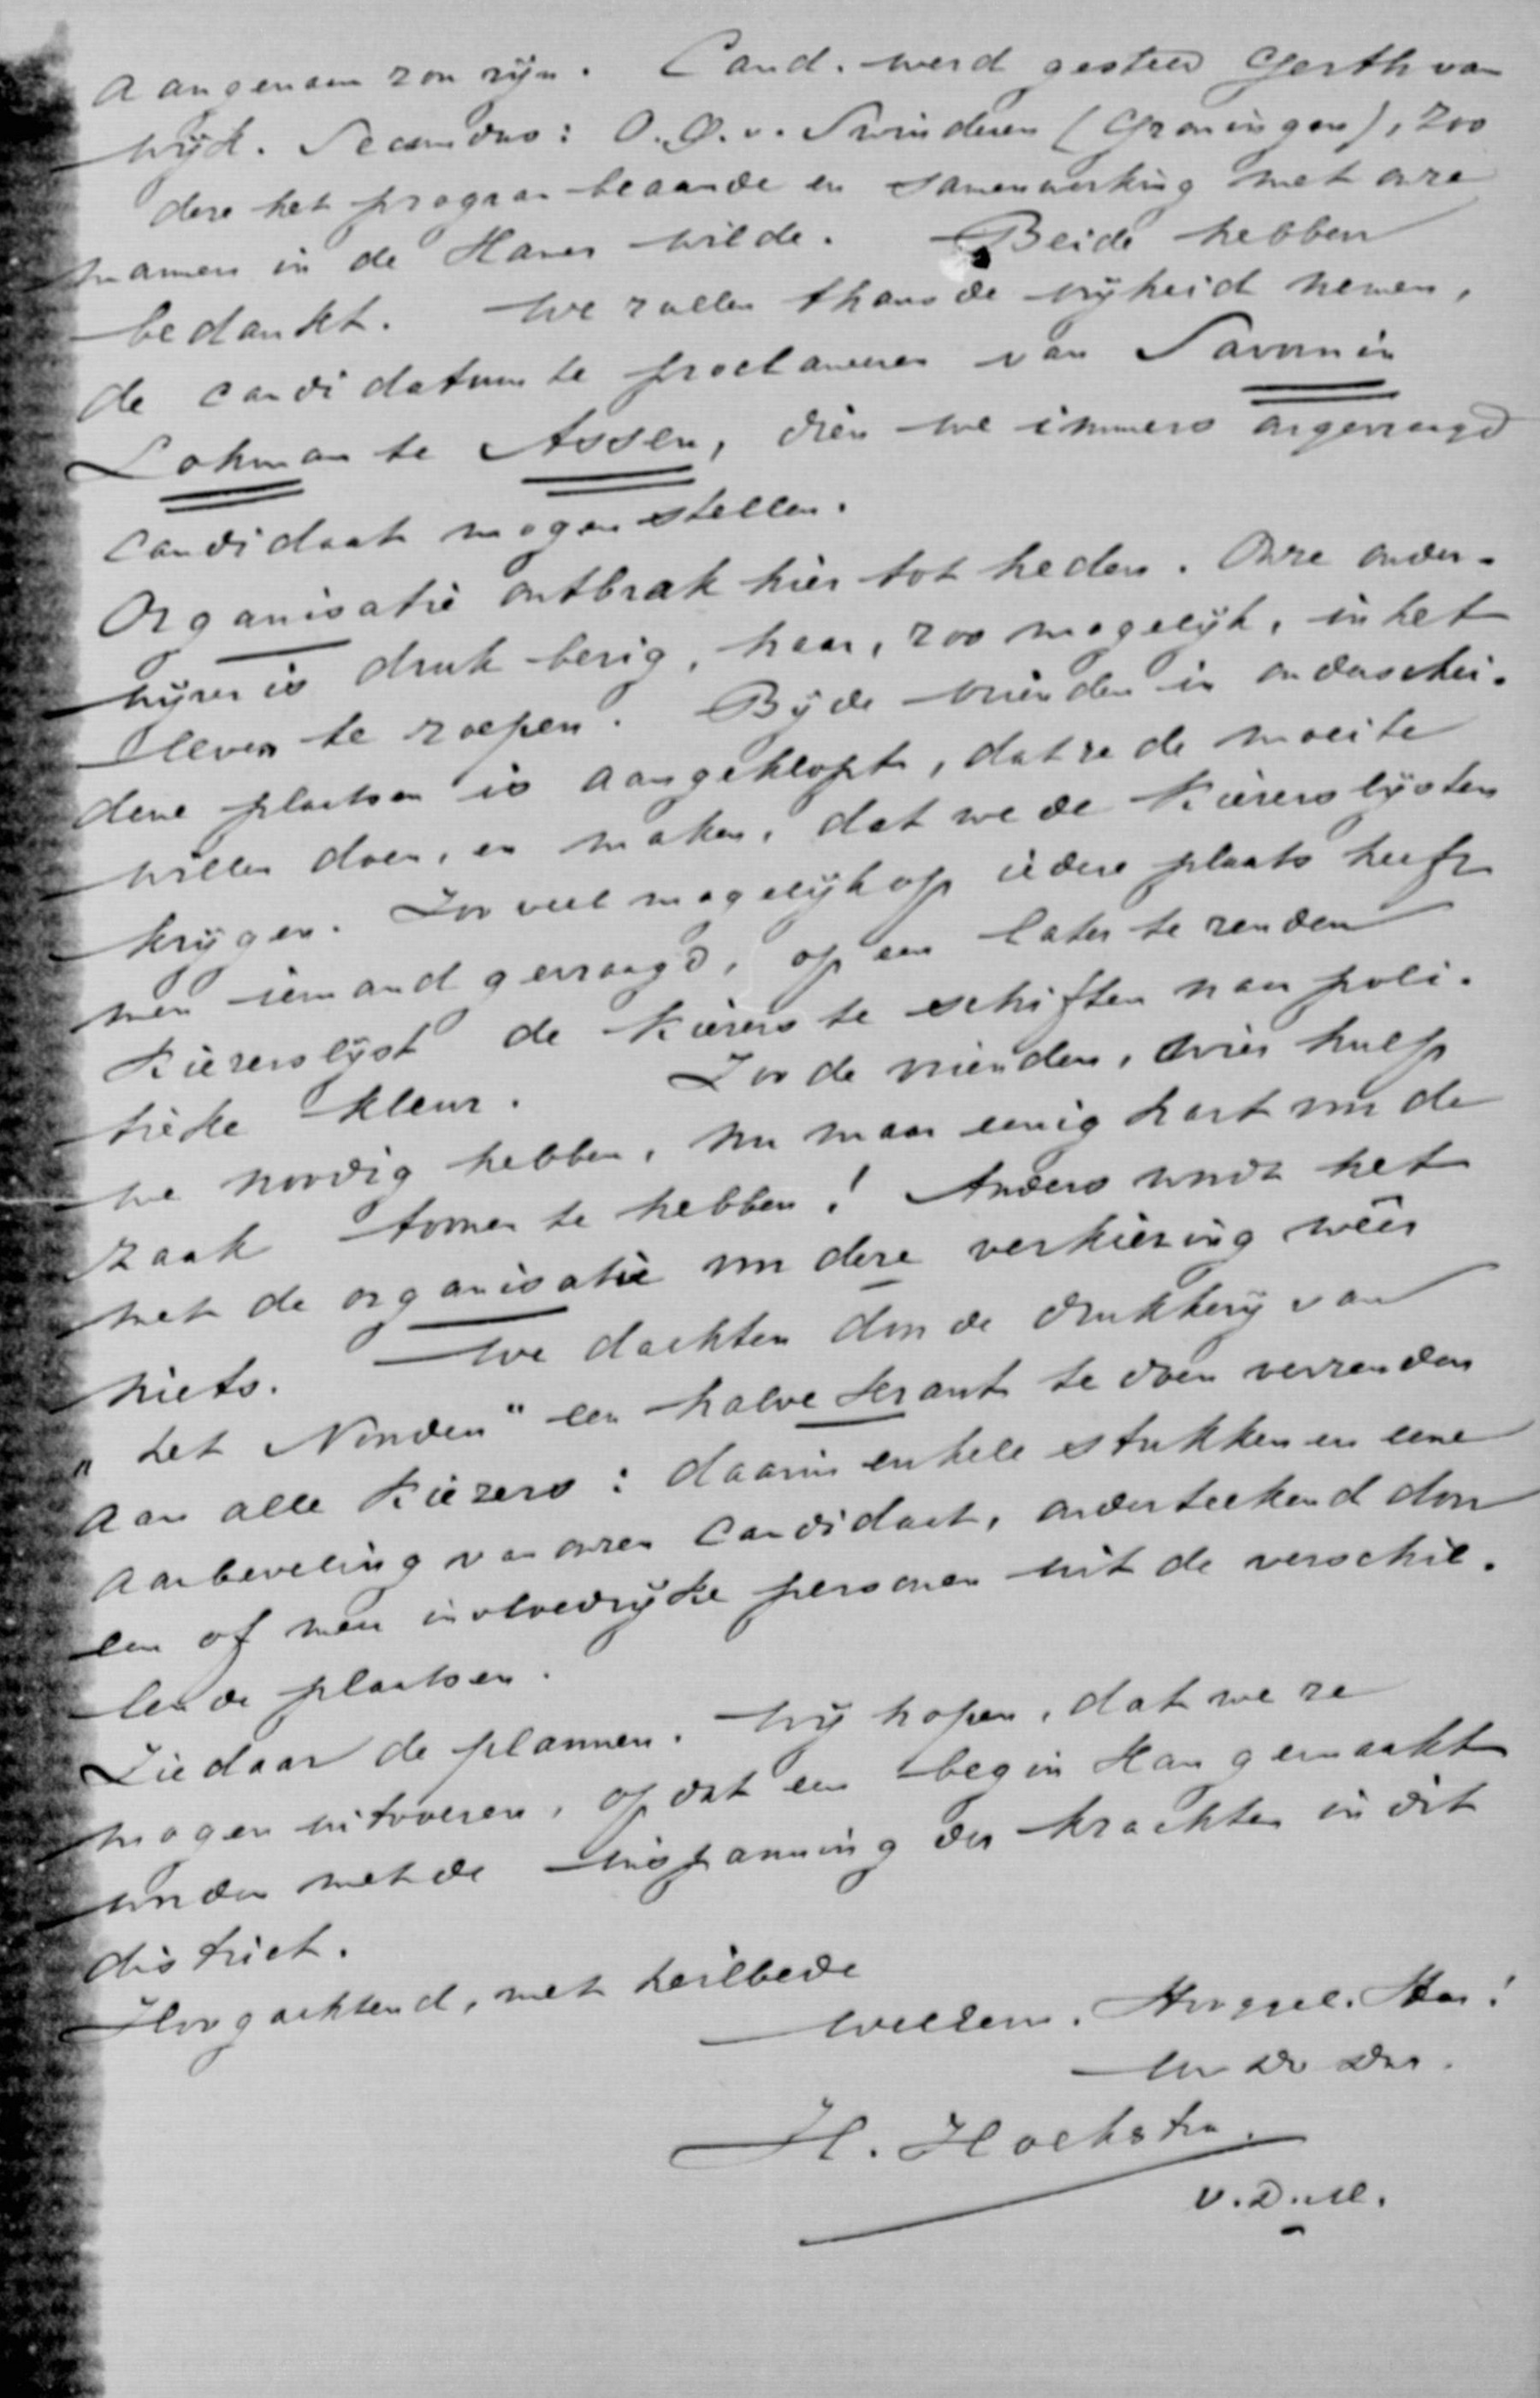 aangenaam zou zijn. Cand. werd gesteld Gerth van
Wijck. Secundus: O.Q.v. Swinderen (Groningen), zoo
deze het program beaamde en samenwerking met onze
mannen in de Kamer wilde. Beide hebben
bedankt. We zullen thans de vrijheid nemen,
de candidatuur te proclameeren van Savornin
Lohman te Assen, dien we immers ongevraagd
candidaat mogen stellen.
Organisatie ontbrak hier tot heden. Onze onder-
wijzer is druk bezig, haar, zoo mogelijk, in het
leven te roepen. Bij de vrienden in onderschei-
dene plaatsen is aangeklopt, dat ze de moeite
willen doen, en maken, dat we de Kiezerslijsten
krijgen. Zooveel mogelijk op iedere plaats heeft
men iemand gevraagd, op een later te zenden
Kiezerslijst de Kiezers te schiften naar poli-
tieke kleur. Zoo de vrienden, wier hulp
we noodig hebben, nu maar eenig hart voor de
zaak toonen te hebben! Anders wordt het
met de organisatie voor deze verkiezing wéér
niets. We dachten door de drukkerij van
"het Noorden" een halve Krant te doen verzenden
aan alle Kiezers: daarin enkele stukken en eene
aanbeveling van onzen candidaat, onderteekend door
een of meer invloedrijke personen uit de verschil-
lende plaatsen.
Ziedaar de plannen. Wij hopen, dat we ze
mogen uitvoeren, opdat een begin kan gemaakt
worden met de inspanning der krachten in dit
district.
Hoogachtend, met heilbede
Weleerw. Hooggel. Heer!
Uw dw dnr.
H. Hoekstra.
V.D.M.